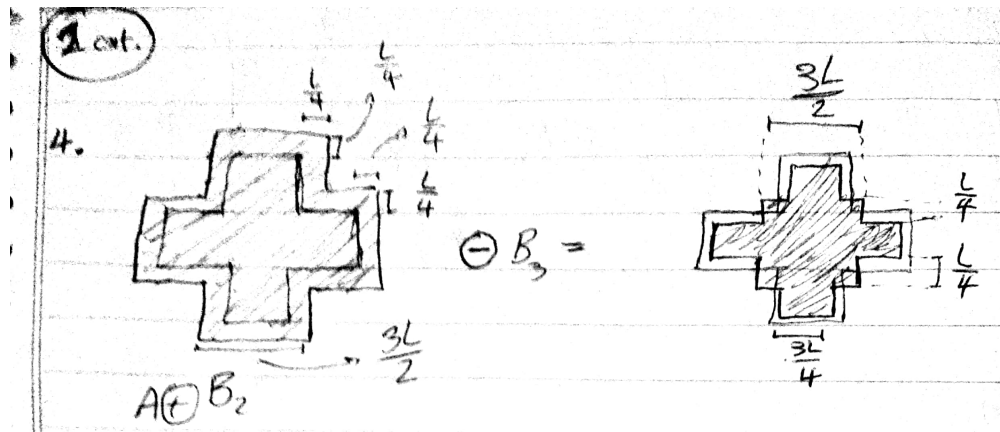 1 cont.
4.
L/4
L/4
L/4
L/4
3L/2
A ⊕ B₂
⊖ B₃ =
3L/2
L/4
L/4
3L/4